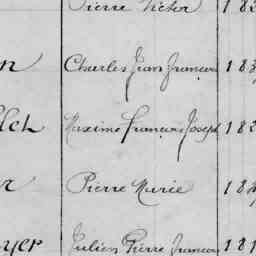 Pierre Victor 18
n Charles Jean François 18
let Maxime François Joseph 18
r Pierre Marie 18
oyer Julien Pierre François 181